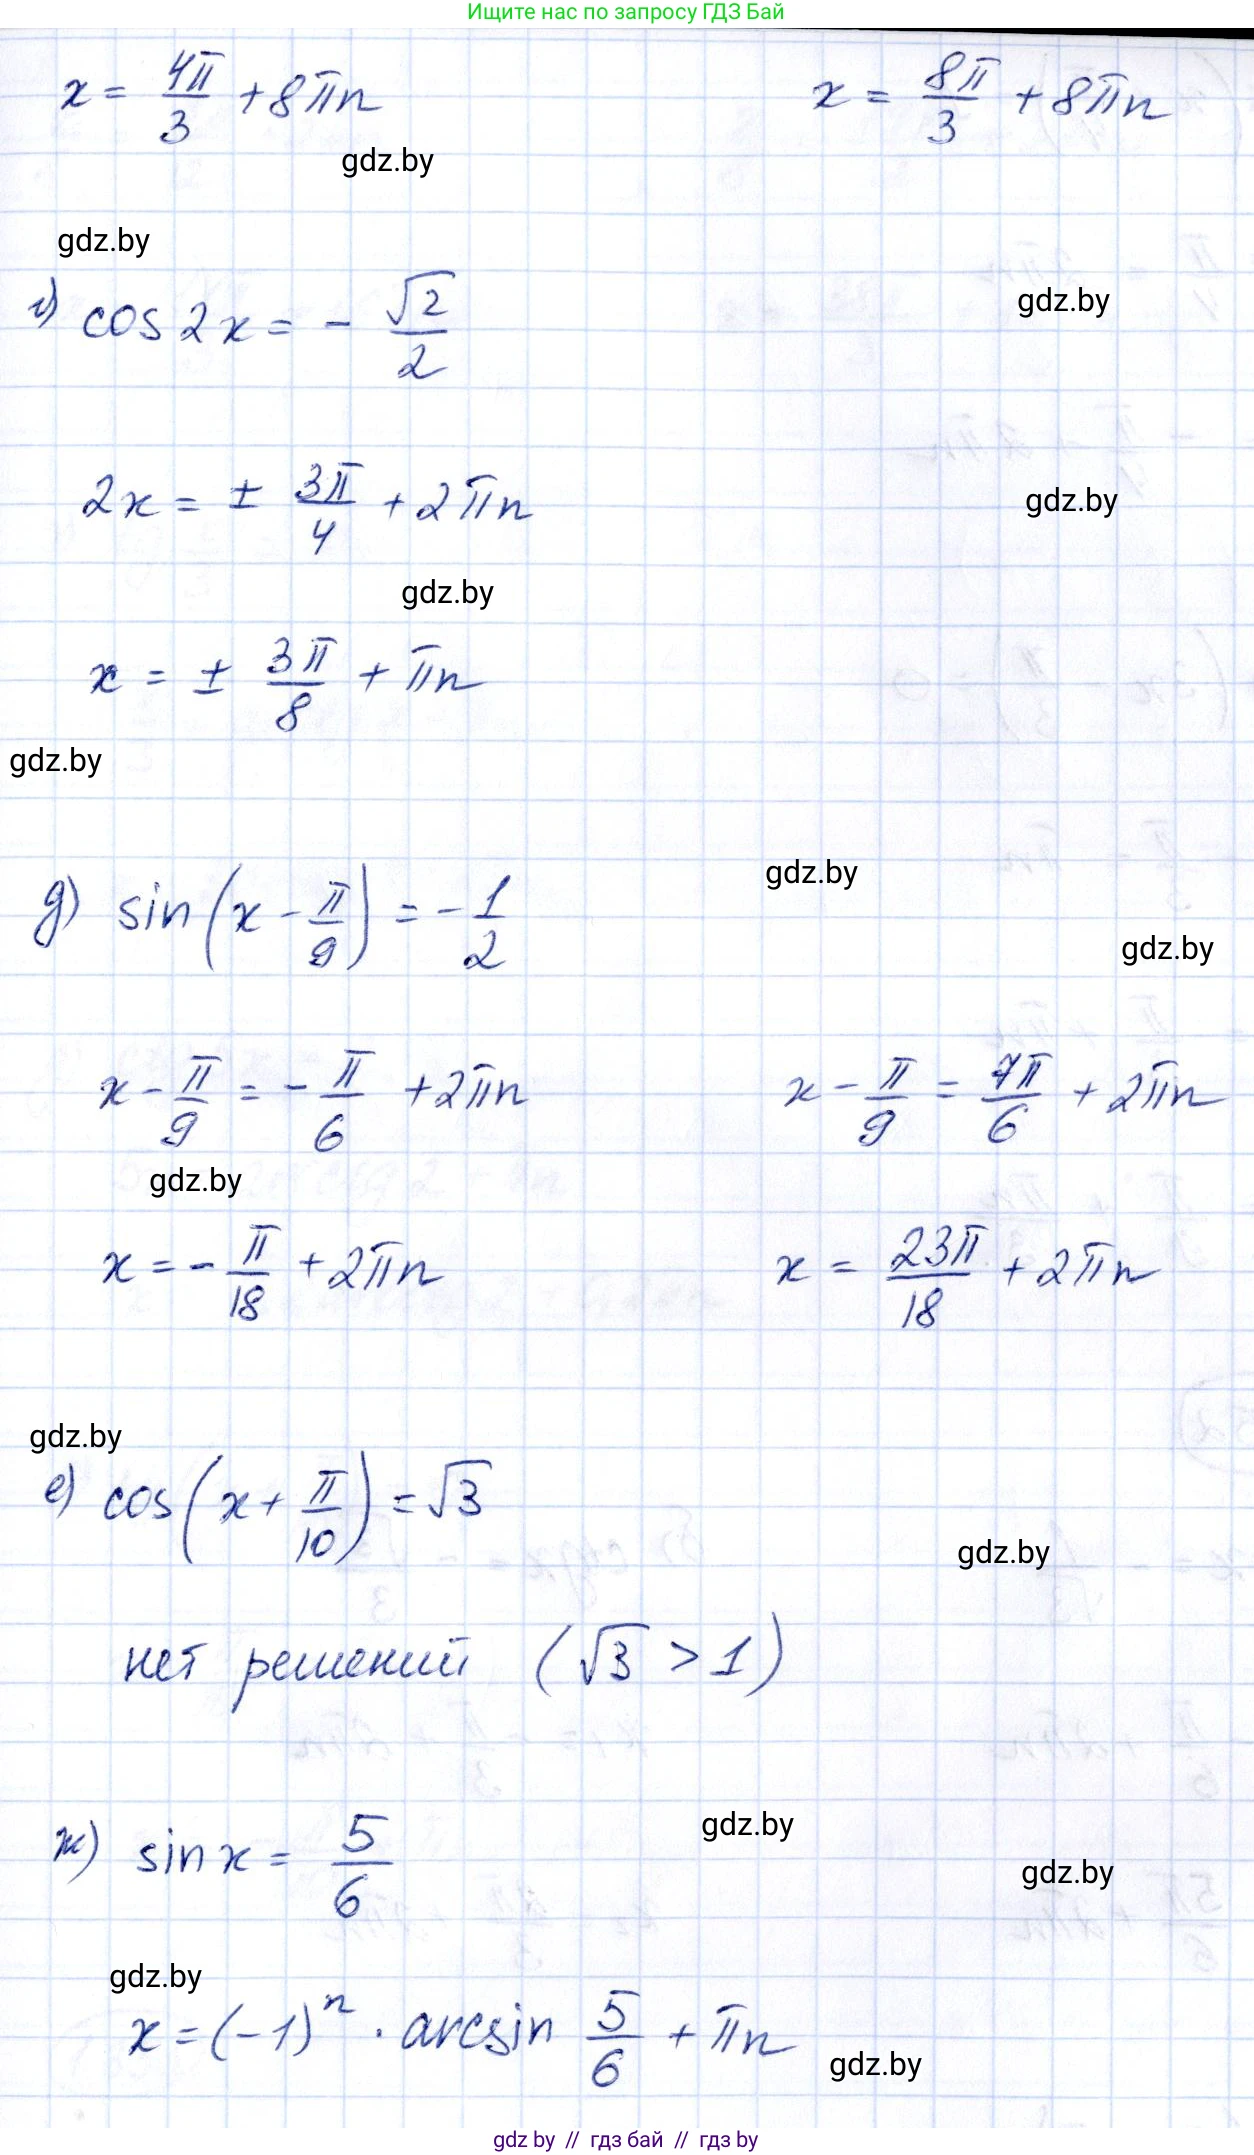 Ищите нас по запросу ГДЗ Бай
x = 4π/3 + 8πn x = 8π/3 + 8πn
gdz.by
gdz.by
г) cos 2x = - √2/2
gdz.by
2x = ± 3π/4 + 2πn
gdz.by
gdz.by
x = ± 3π/8 + πn
gdz.by
gdz.by
д) sin(x - π/9) = - 1/2
gdz.by
x - π/9 = - π/6 + 2πn x - π/9 = 7π/6 + 2πn
gdz.by
x = - π/18 + 2πn x = 23π/18 + 2πn
gdz.by
е) cos(x + π/10) = √3
gdz.by
нет решений (√3 > 1)
gdz.by
ж) sin x = 5/6
gdz.by
gdz.by
x = (-1)ⁿ · arcsin 5/6 + πn
gdz.by
gdz by // гдз бай // гдз by